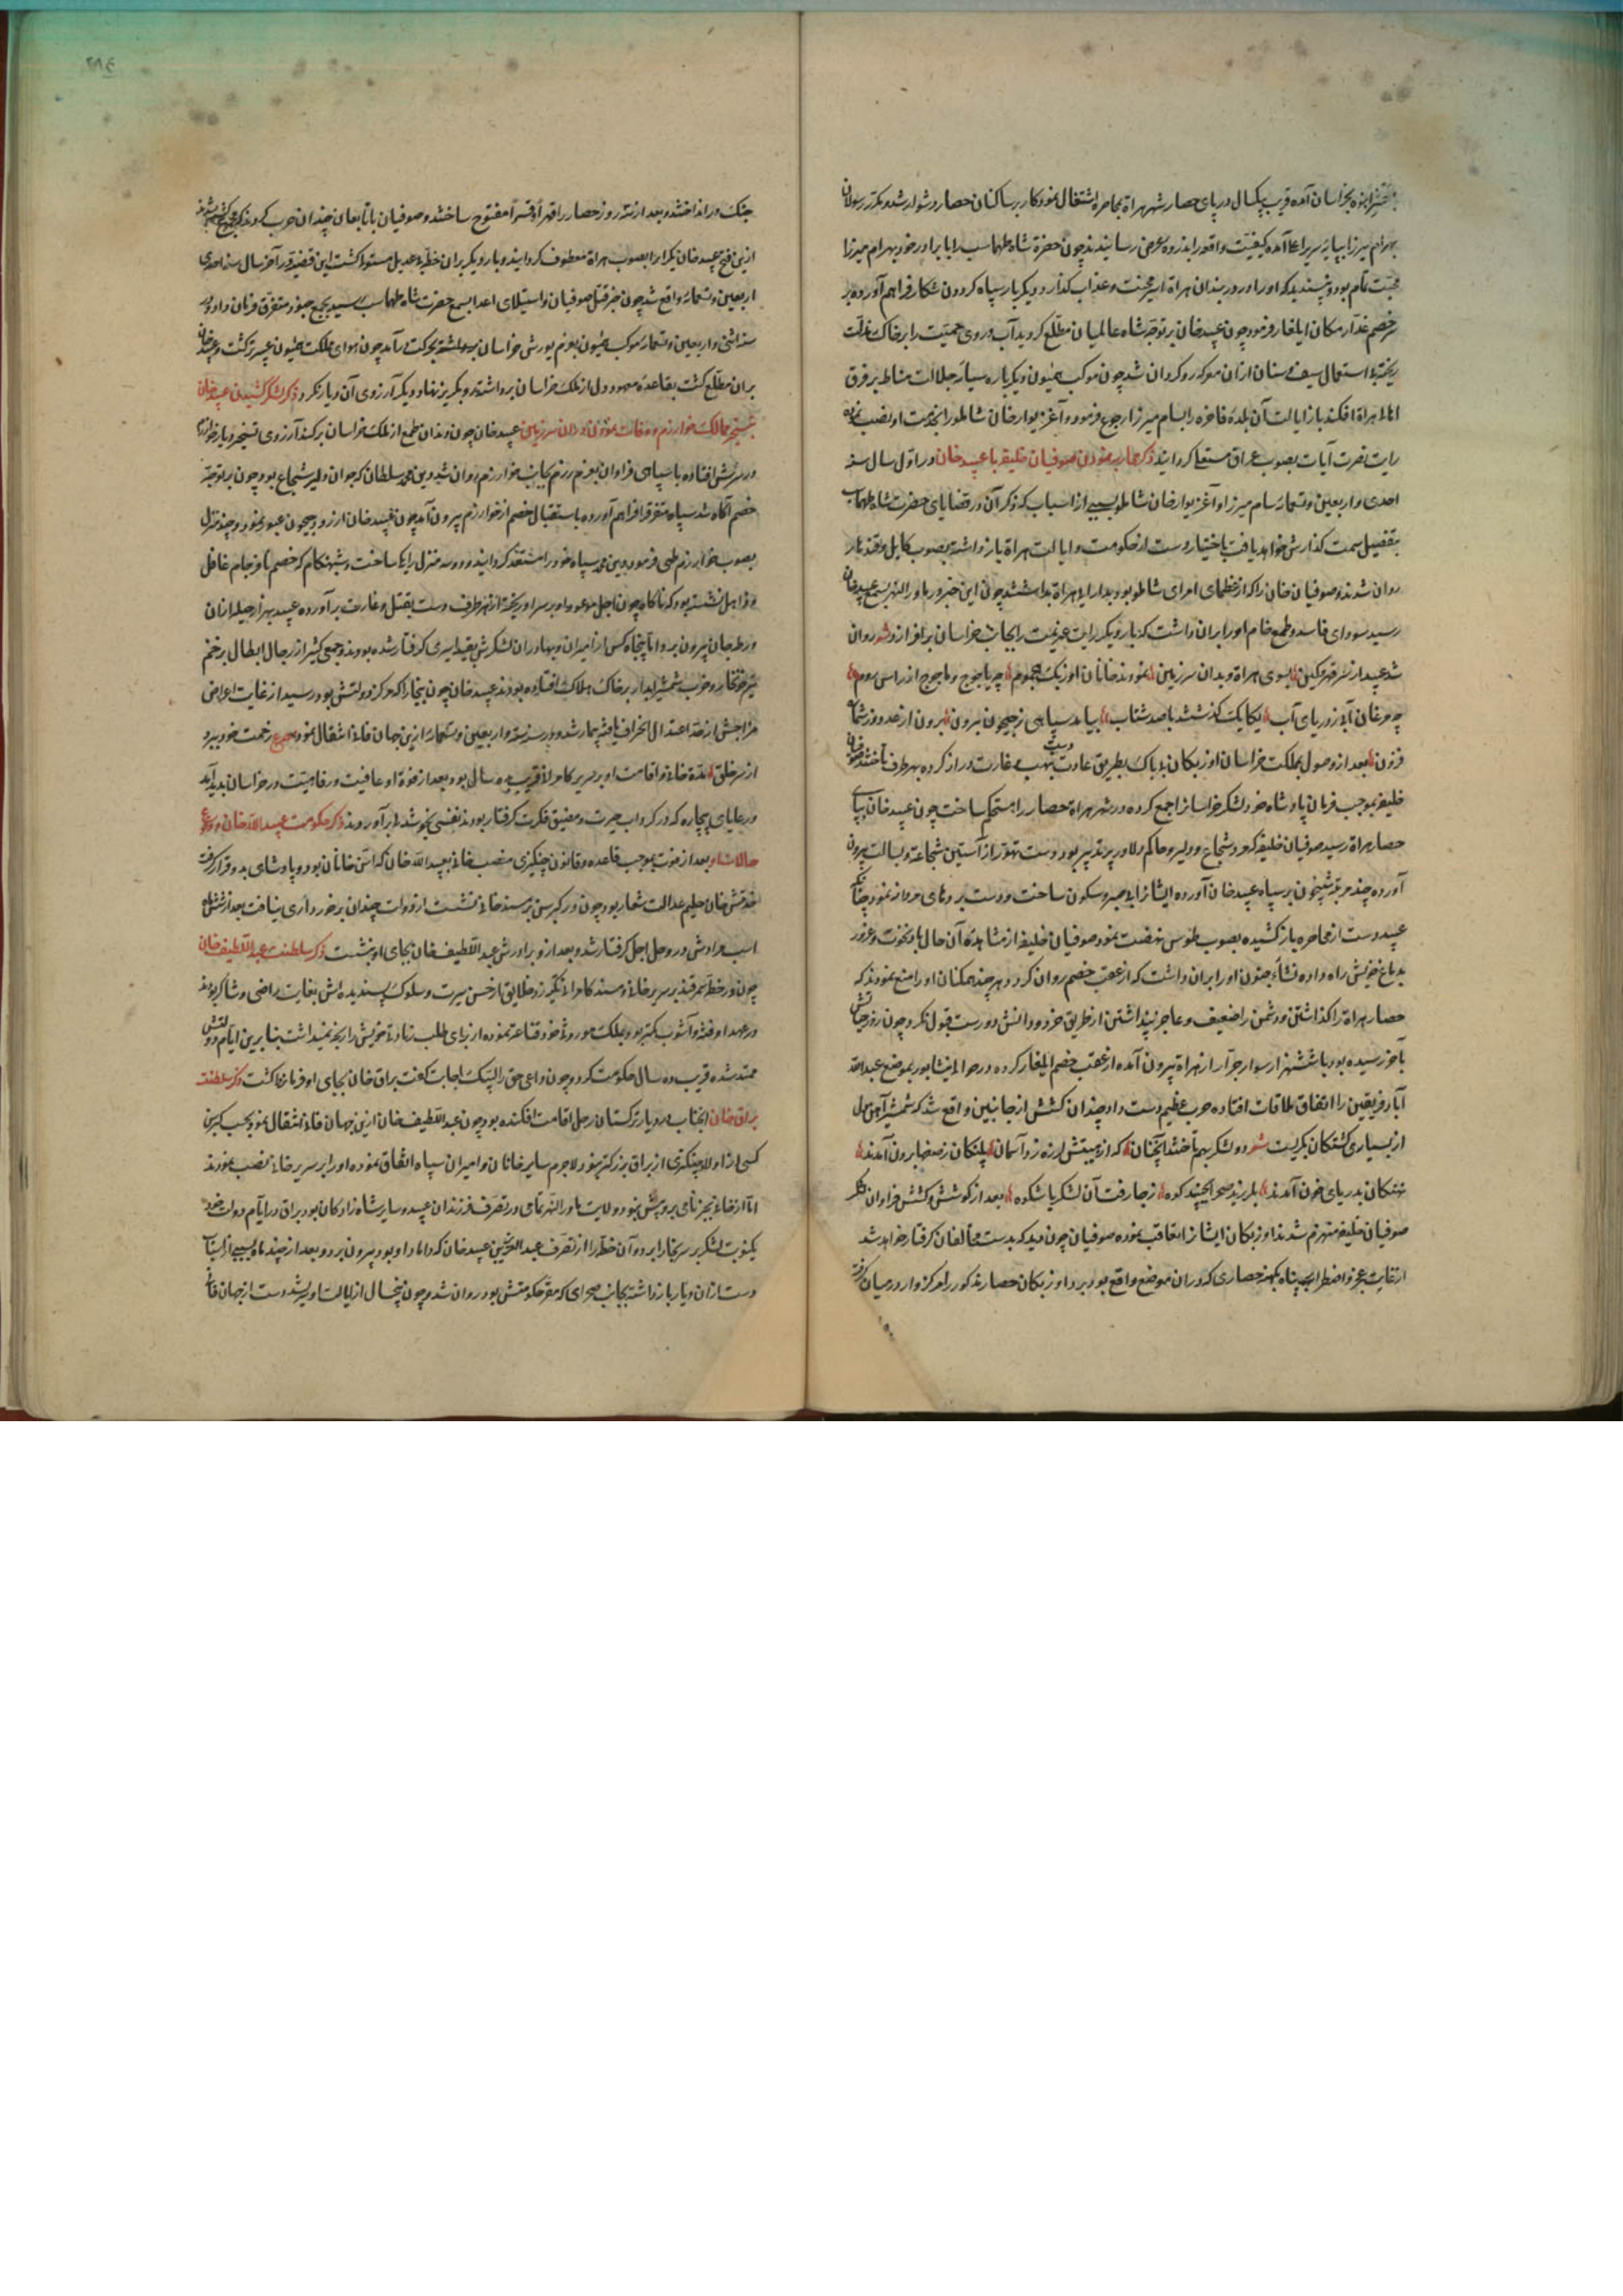 بخراسان آمده قریب یکسال در پای حصار شهر هراة بمحاصره اشتغال نمود کار بر ساکنان حصار دشوار شد و مکرر رسولان
بهرام میرزا بپایه سریر اعلا آمده کیفیت واقعه را بذروه عرض رسانیدند چون حضرة شاه طهماسب را با برادر خود بهرام میرزا
محبت تام بود و نپسندید که او را در زندان هراة اسیر محنت و عذاب گذارد دیگر بار سپاه گردون شکار فراهم آورده بر
سر خصم غدار مکان ایلغار فرمود چون عبید خان بر توجه شاه عالمیان مطلع گردید آب روی حمیت را بر خاک مذلت
ریخته بی استعمال سیف و سنان از آن معرکه روگردان شد چون موکب همیون دیگر باره سایه جلالت مناط بر فرق
اهالی هراة افکند باز ایالت آن بلده فاخره را بسام میرزا رجوع فرمود و آغزیوار خان شاملو را بخدمت او نصب نموده
رایت نصرت آیات بصوب عراق منعطف گردانید ذکر محاربه نمودن صوفیان خلیفه با عبید خان در اول سال سنه
احدی و اربعین و تسعمائه سام میرزا و آغزیوار خان شاملو بسببی از اسباب که ذکر آن در قضایای حضرت شاه طهماسب
بتفصیل سمت گذارش خواهد یافت باختیار دست از حکومت و ایالت هراة باز داشته بصوب کابل و قندهار
روان شدند و صوفیان خان را که از عظمای امرای شاملو بود بدارایی هراة بداشتند چون این خبر در ماوراءالنهر بسمع عبید خان
رسید سودای فاسد و طمع خام او را بر آن داشت که بار دیگر رایت عزیمت را بجانب خراسان برافرازد شعر روان
شد عبید از سمرقند کین بسوی هراة و بدان سرزمین نمودند خانان اوزبک هجوم چو یاجوج و ماجوج از راس روم
چو مرغان آبی ز دریای آب یکایک گذشتند با صد شتاب بیامد سپاهی ز جیحون برون برون از عدد وز شمار
فزون بعد از وصول بمملکت خراسان اوزبکان بی باک بطریق عادت دست بنهب و غارت دراز کرده بهر طرف تاختند صوفیان
خلیفه بموجب فرمان پادشاه خود لشکر خراسانرا جمع کرده در شهر هراة حصار را مستحکم ساخت چون عبید خان بپای
حصار هراة رسید صوفیان خلیفه که مرد شجاع و دلیر و حاکم دلاور پر تدبیر بود دست تهور از آستین شجاعت و بسالت بیرون
آورده چند مرتبه شبیخون بر سپاه عبید خان آورده ایشانرا بی صبر و سکون ساخت و دست بردهای مردانه نمود چنانکه
عبید دست از محاصره باز کشیده بصوب طوس نهضت نمود صوفیان خلیفه از مشاهده آن حال باد نخوت و غرور
بدماغ خویش راه داده نشاء جنون او را بر آن داشت که از عقب خصم روان گردد هر چند همگنان او را منع نمودند که
حصار هراة را گذاشتن و دشمن را ضعیف و عاجز پنداشتن از طریق خرد و دانش دور است قبول نکرد چون روز حیاتش
بآخر رسیده بود با ششهزار سوار جرار از هراة بیرون آمده از عقب خصم ایلغار کرده در حوالی نیشابور بموضع عبدالله
آباد فریقین را اتفاق ملاقات افتاده حرب عظیم دست داد چندان کشش از جانبین واقع شد که شمشیر آهن دل
از بسیاری کشتگان بگریست شعر دو لشکر بهم تاختند آنچنان که از هیبتش لرزه زد آسمان پلنگان ز صحرا برون آمدند
نهنگان بدریای خون آمدند بلرزید صحرا بجنبید کوه ز جا رفت آن لشکر با شکوه بعد از کوشش و کشش فراوان لشکر
صوفیان خلیفه منهزم شدند اوزبکان ایشانرا تعاقب نموده صوفیان چون دید که بدست مخالفان گرفتار خواهد شد
از غایت عجز و اضطراب پناه بکهنه حصاری که در آن موضع واقع بود برد اوزبکان حصار مذکور را مرکزوار در میان گرفته
جنگ در انداختند و بعد از سه روز حصار را قهرا و قسرا مفتوح ساختند و صوفیان با تابعان چندان حرب کردند که همگی کشته شدند
ازین فتح عبید خان دیگر بار بصوب هراة معطوف گردانید و بار دیگر بر آن خطه بی عدیل مستولی گشت این قضیه در آخر سال سنه احدی
اربعین و تسعمائه واقع شد چون خبر قتل صوفیان و استیلای اعدا بسمع حضرت شاه طهماسب رسید بجمع جنود متفرق فرمان داد و در
سنه اثنی و اربعین و تسعمائه موکب همیون بعزم یورش خراسان بحرکت در آمد چون هوای مملکت همیون عبیر ترکشت و عبید خان
بر آن مطلع گشت بقاعده معهود دل از ملک خراسان برداشته رو بگریز نهاد و دیگر آرزوی آن دیار نکرد ذکر لشکر کشیدن عبید خان
بتسخیر ممالک خوارزم و وفات نمودن در آن سرزمین عبید خان چون دندان طمع از ملک خراسان برکند آرزوی تسخیر دیار خوارزم
در سرش افتاده با سپاهی فراوان بعزم رزم بجانب خوارزم روان شد دین محمد سلطان که جوان دلیر شجاع بود چون بر توجه
خصم آگاه شد سپاه متفرقه فراهم آورده باستقبال خصم از خوارزم بیرون آمد چون عبید خان از رود جیحون عبور نمود و چند منزل
بصوب خوارزم طی فرمود دین محمد سپاه خود را مستعد گردانید و دو سه منزل را یکی ساخت و شبهنگام که خصم نافرجام غافل
و ذاهل نشسته بود که ناگاه چون اجل موعود او بر سر او ریخته از هر طرف دست بقتل و غارت برآورده عبید بهزار حیله از آن
ورطه جان بیرون برد و اما پنجاه کس از امیران و بهادران لشکرش بقید اسیری گرفتار شده بودند و جمعی کثیر از رجال ابطال بزخم
تیر خونخوار و ضرب شمشیر آبدار بر خاک هلاکت افتاده بودند عبید خان چون ببخارا که مرکز دولتش بود رسید از غایت اعراض
مزاجش از حد اعتدال انحراف یافته بیمار شد و در سنه ستة و اربعین و تسعمائه ازین جهان فانی انتقال نمود مصرع زحمت خود ببرد
از سر خلق مدة خانی و اقامت او بر سریر کامرانی قریب ده سال بود بعد از فوت او عافیت و رفاهیت در خراسان پدید آمد
و رعایای بیچاره که در گرداب حیرت و مضیق فکرت گرفتار بودند نفسی بخوشدلی برآوردند ذکر حکومت عبدالله خان و وقوع
حالات او بعد از فوت بموجب قاعده و قانون چنگیزی منصب خانی بعبدالله خان که اسن خانان بود و پادشاهی بدو قرار گرفت
خدمتش خان حلیم عدالت شعار بود چون در کبر سن بر مسند خانی نشست از دولت چندان برخورداری نیافت بعد از ششماه
اسب مرادش در وحل اجل گرفتار شد و بعد از و برادرش عبداللطیف خان بجای او بنشست ذکر سلطنت عبداللطیف خان
چون در خطه سمرقند بر سریر خانی و مسند کامرانی تکیه زد خلایق از حسن سیرت و سلوک پسندیده اش بغایت راضی و شاکر بودند
در عهد او فتنه و آشوب کمتر بود بملک موروثی خود قناعت نموده از برای طلب زیادتی خویش را رنجه نمیداشت بنابرین ایام دولتش
ممتد شده قریب ده سال حکومت کرد و چون داعی حق را لبیک اجابت گفت براق خان بجای او فرمانفرما گشت ذکر سلطنت
براق خان آنجناب در دیار ترکستان رحل اقامت افکنده بود چون عبداللطیف خان ازین جهان فانی انتقال نمود بحسب کبر سن
کسی از اولاد چنگزی از براق بزرگتر نبود لاجرم سایر خانان و امیران سپاه اتفاق نموده او را بر سریر خانی نصب نمودند
اما از خانی بجز نامی برو بیش نبود و ولایت ماوراءالنهر تمامی در تصرف فرزندان عبید و سایر شاهزادگان بود براق در ایام دولت خود
یکنوبت لشکر بر سر بخارا برد و آن خطه را از تصرف عبدالعزیز بن عبید خان که داماد او بود بیرون برد و بعد از چند ماه بسببی از اسباب
دست از آن دیار باز داشته بجانب صحرای که مقر حکومتش بود روان شد و چون پنجسال از ایالت او بسر شد دست از جهان فانی